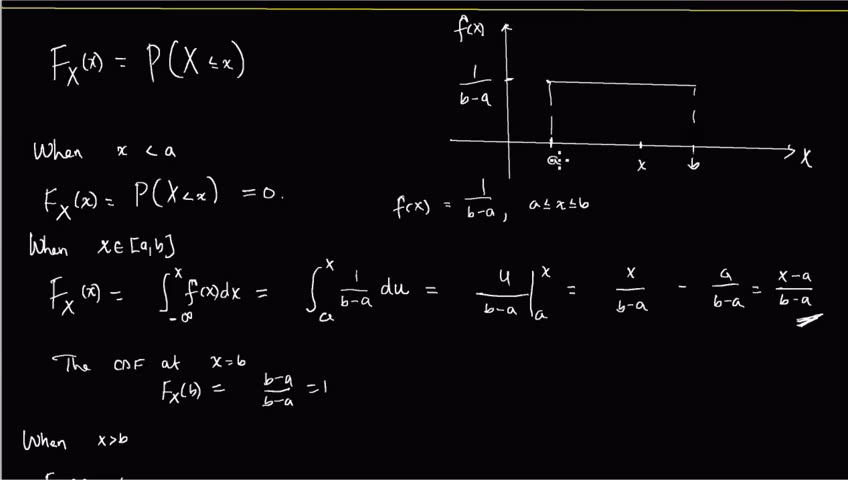 F_X(x) = P(X ≤ x)
f(x)
1/(b-a)
a x b X
f(x) = 1/(b-a), a ≤ x ≤ b
When x < a
F_X(x) = P(X < x) = 0.
When x ∈ [a,b]
F_X(x) = ∫_{-∞}^{x} f(x)dx = ∫_{a}^{x} 1/(b-a) du = u/(b-a) |_{a}^{x} = x/(b-a) - a/(b-a) = (x-a)/(b-a)
The CDF at x=b
F_X(b) = (b-a)/(b-a) = 1
When x>b